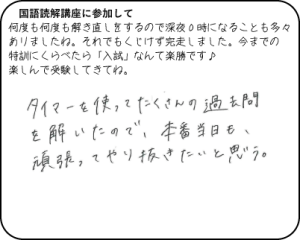 国語読解講座に参加して
何度も何度も解き直しをするので深夜０時になることも多々
ありましたね。それでもくじけず完走しました。今までの
特訓にくらべたら「入試」なんて楽勝です♪
楽しんで受験してきてね。
タイマーを使ってたくさんの過去問
を解いたので、本番当日も、
頑張ってやり抜きたいと思う。